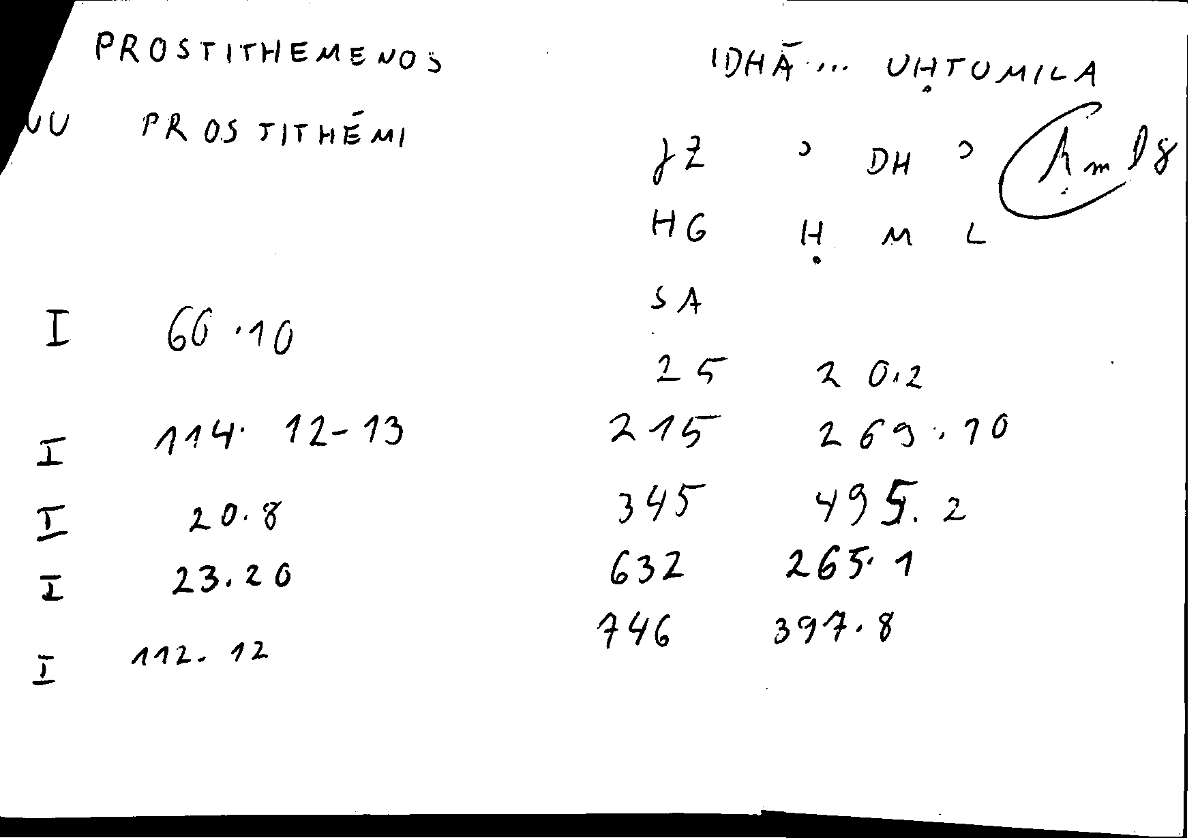 PROSTITHEMENOS IDHĀ... UḤTUMILA
VU PROSTITHÉMI
JZ ɔ DH ɔ
HG Ḥ M L
SA
I 66.10
25 20.2
I 114. 12-13 215 269.10
I 20.8 345 495.2
I 23.20 632 265.1
I 112.12 746 397.8